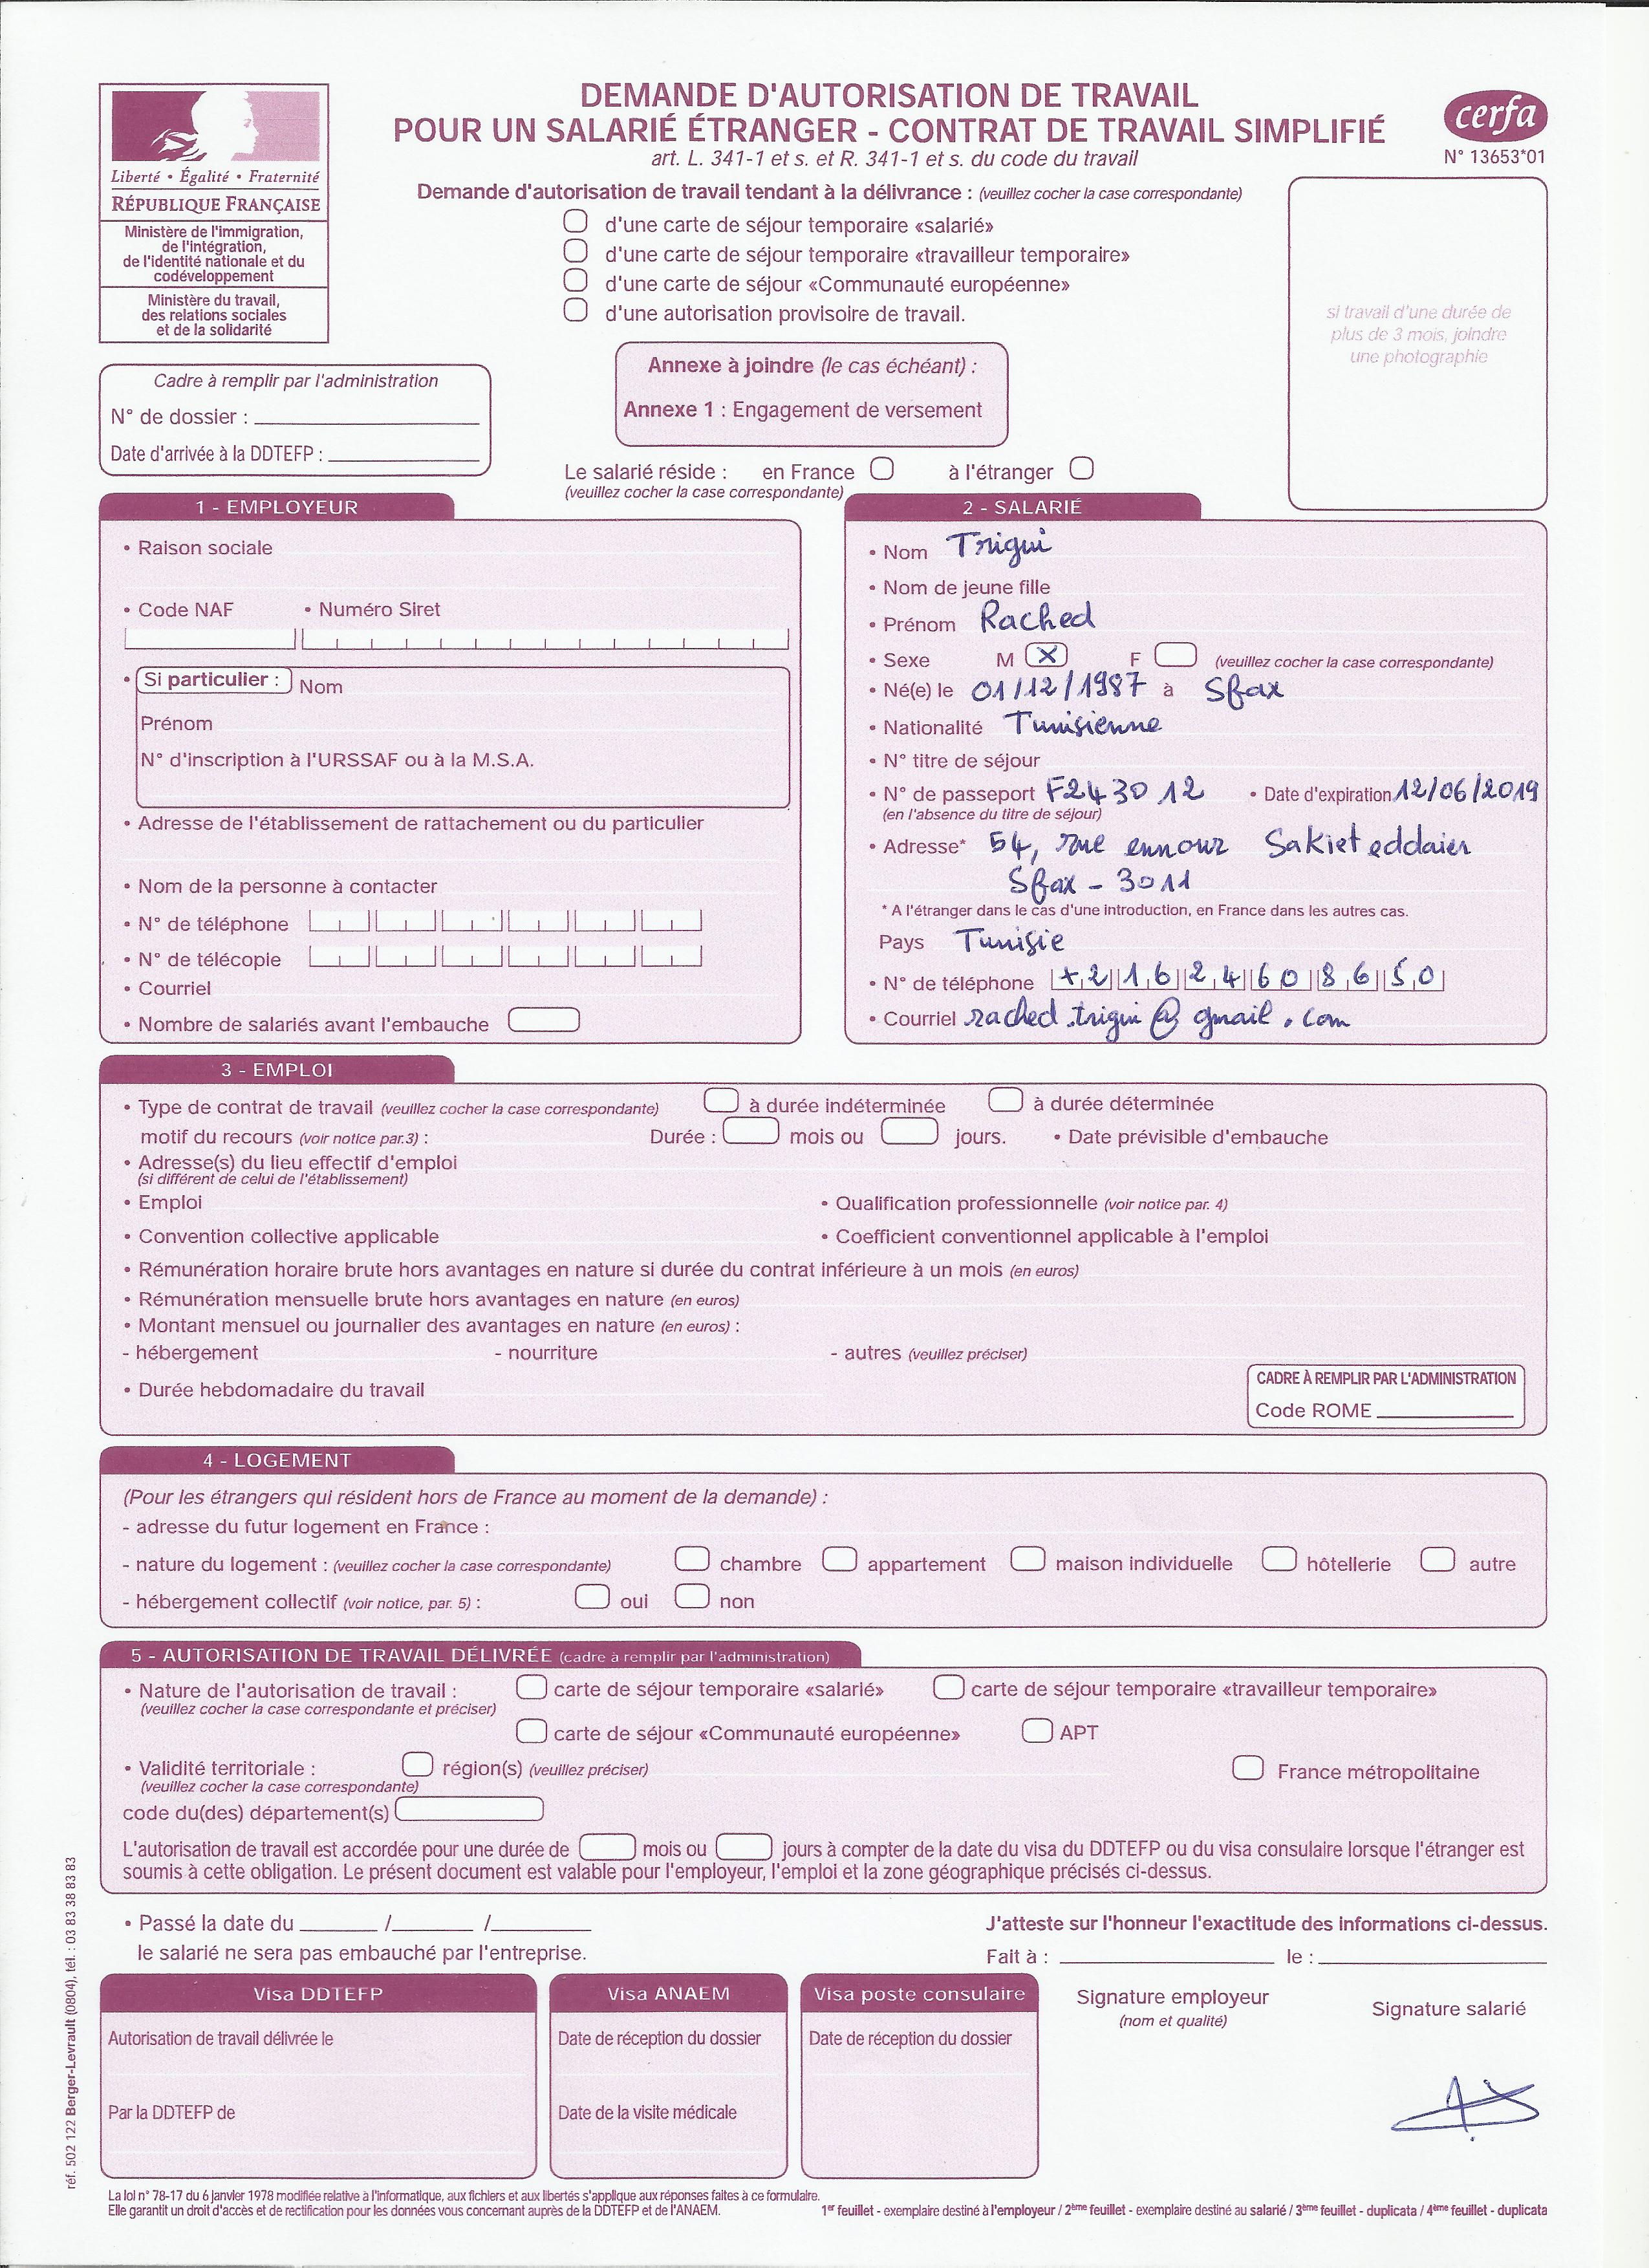 DEMANDE D'AUTORISATION DE TRAVAIL
POUR UN SALARIÉ ÉTRANGER - CONTRAT DE TRAVAIL SIMPLIFIÉ
art. L. 341-1 et s. et R. 341-1 et s. du code du travail
cerfa
N° 13653*01
Liberté • Égalité • Fraternité
RÉPUBLIQUE FRANÇAISE
Ministère de l'immigration,
de l'intégration,
de l'identité nationale et du
codéveloppement
Ministère du travail,
des relations sociales
et de la solidarité
Demande d'autorisation de travail tendant à la délivrance : (veuillez cocher la case correspondante)
d'une carte de séjour temporaire «salarié»
d'une carte de séjour temporaire «travailleur temporaire»
d'une carte de séjour «Communauté européenne»
d'une autorisation provisoire de travail.
si travail d'une durée de
plus de 3 mois, joindre
une photographie
Cadre à remplir par l'administration
N° de dossier :
Date d'arrivée à la DDTEFP :
Annexe à joindre (le cas échéant) :
Annexe 1 : Engagement de versement
Le salarié réside : en France à l'étranger
(veuillez cocher la case correspondante)
1 - EMPLOYEUR
• Raison sociale
• Code NAF • Numéro Siret
• Si particulier : Nom
Prénom
N° d'inscription à l'URSSAF ou à la M.S.A.
• Adresse de l'établissement de rattachement ou du particulier
• Nom de la personne à contacter
• N° de téléphone
• N° de télécopie
• Courriel
• Nombre de salariés avant l'embauche
2 - SALARIÉ
• Nom Trigui
• Nom de jeune fille
• Prénom Rached
• Sexe M X F (veuillez cocher la case correspondante)
• Né(e) le 01/12/1987 à Sfax
• Nationalité Tunisienne
• N° titre de séjour
• N° de passeport F243012 • Date d'expiration 12/06/2019
(en l'absence du titre de séjour)
• Adresse* 54, rue ennour Sakiet eddaier
Sfax - 3011
* A l'étranger dans le cas d'une introduction, en France dans les autres cas.
Pays Tunisie
• N° de téléphone +21624608650
• Courriel rached.trigui@gmail.com
3 - EMPLOI
• Type de contrat de travail (veuillez cocher la case correspondante) à durée indéterminée à durée déterminée
motif du recours (voir notice par.3) : Durée : mois ou jours. • Date prévisible d'embauche
• Adresse(s) du lieu effectif d'emploi
(si différent de celui de l'établissement)
• Emploi • Qualification professionnelle (voir notice par. 4)
• Convention collective applicable • Coefficient conventionnel applicable à l'emploi
• Rémunération horaire brute hors avantages en nature si durée du contrat inférieure à un mois (en euros)
• Rémunération mensuelle brute hors avantages en nature (en euros)
• Montant mensuel ou journalier des avantages en nature (en euros) :
- hébergement - nourriture - autres (veuillez préciser)
• Durée hebdomadaire du travail
CADRE À REMPLIR PAR L'ADMINISTRATION
Code ROME
4 - LOGEMENT
(Pour les étrangers qui résident hors de France au moment de la demande) :
- adresse du futur logement en France :
- nature du logement : (veuillez cocher la case correspondante) chambre appartement maison individuelle hôtellerie autre
- hébergement collectif (voir notice, par. 5) : oui non
5 - AUTORISATION DE TRAVAIL DÉLIVRÉE (cadre à remplir par l'administration)
• Nature de l'autorisation de travail : carte de séjour temporaire «salarié» carte de séjour temporaire «travailleur temporaire»
(veuillez cocher la case correspondante et préciser)
carte de séjour «Communauté européenne» APT
• Validité territoriale : région(s) (veuillez préciser) France métropolitaine
(veuillez cocher la case correspondante)
code du(des) département(s)
L'autorisation de travail est accordée pour une durée de mois ou jours à compter de la date du visa du DDTEFP ou du visa consulaire lorsque l'étranger est
soumis à cette obligation. Le présent document est valable pour l'employeur, l'emploi et la zone géographique précisés ci-dessus.
• Passé la date du / /
le salarié ne sera pas embauché par l'entreprise.
J'atteste sur l'honneur l'exactitude des informations ci-dessus.
Fait à : le :
Visa DDTEFP
Autorisation de travail délivrée le
Par la DDTEFP de
Visa ANAEM
Date de réception du dossier
Date de la visite médicale
Visa poste consulaire
Date de réception du dossier
Signature employeur
(nom et qualité)
Signature salarié
réf. 502 122 Berger-Levrault (0804), tél. : 03 83 38 83 83
La loi n° 78-17 du 6 janvier 1978 modifiée relative à l'informatique, aux fichiers et aux libertés s'applique aux réponses faites à ce formulaire.
Elle garantit un droit d'accès et de rectification pour les données vous concernant auprès de la DDTEFP et de l'ANAEM.
1er feuillet - exemplaire destiné à l'employeur / 2ème feuillet - exemplaire destiné au salarié / 3ème feuillet - duplicata / 4ème feuillet - duplicata